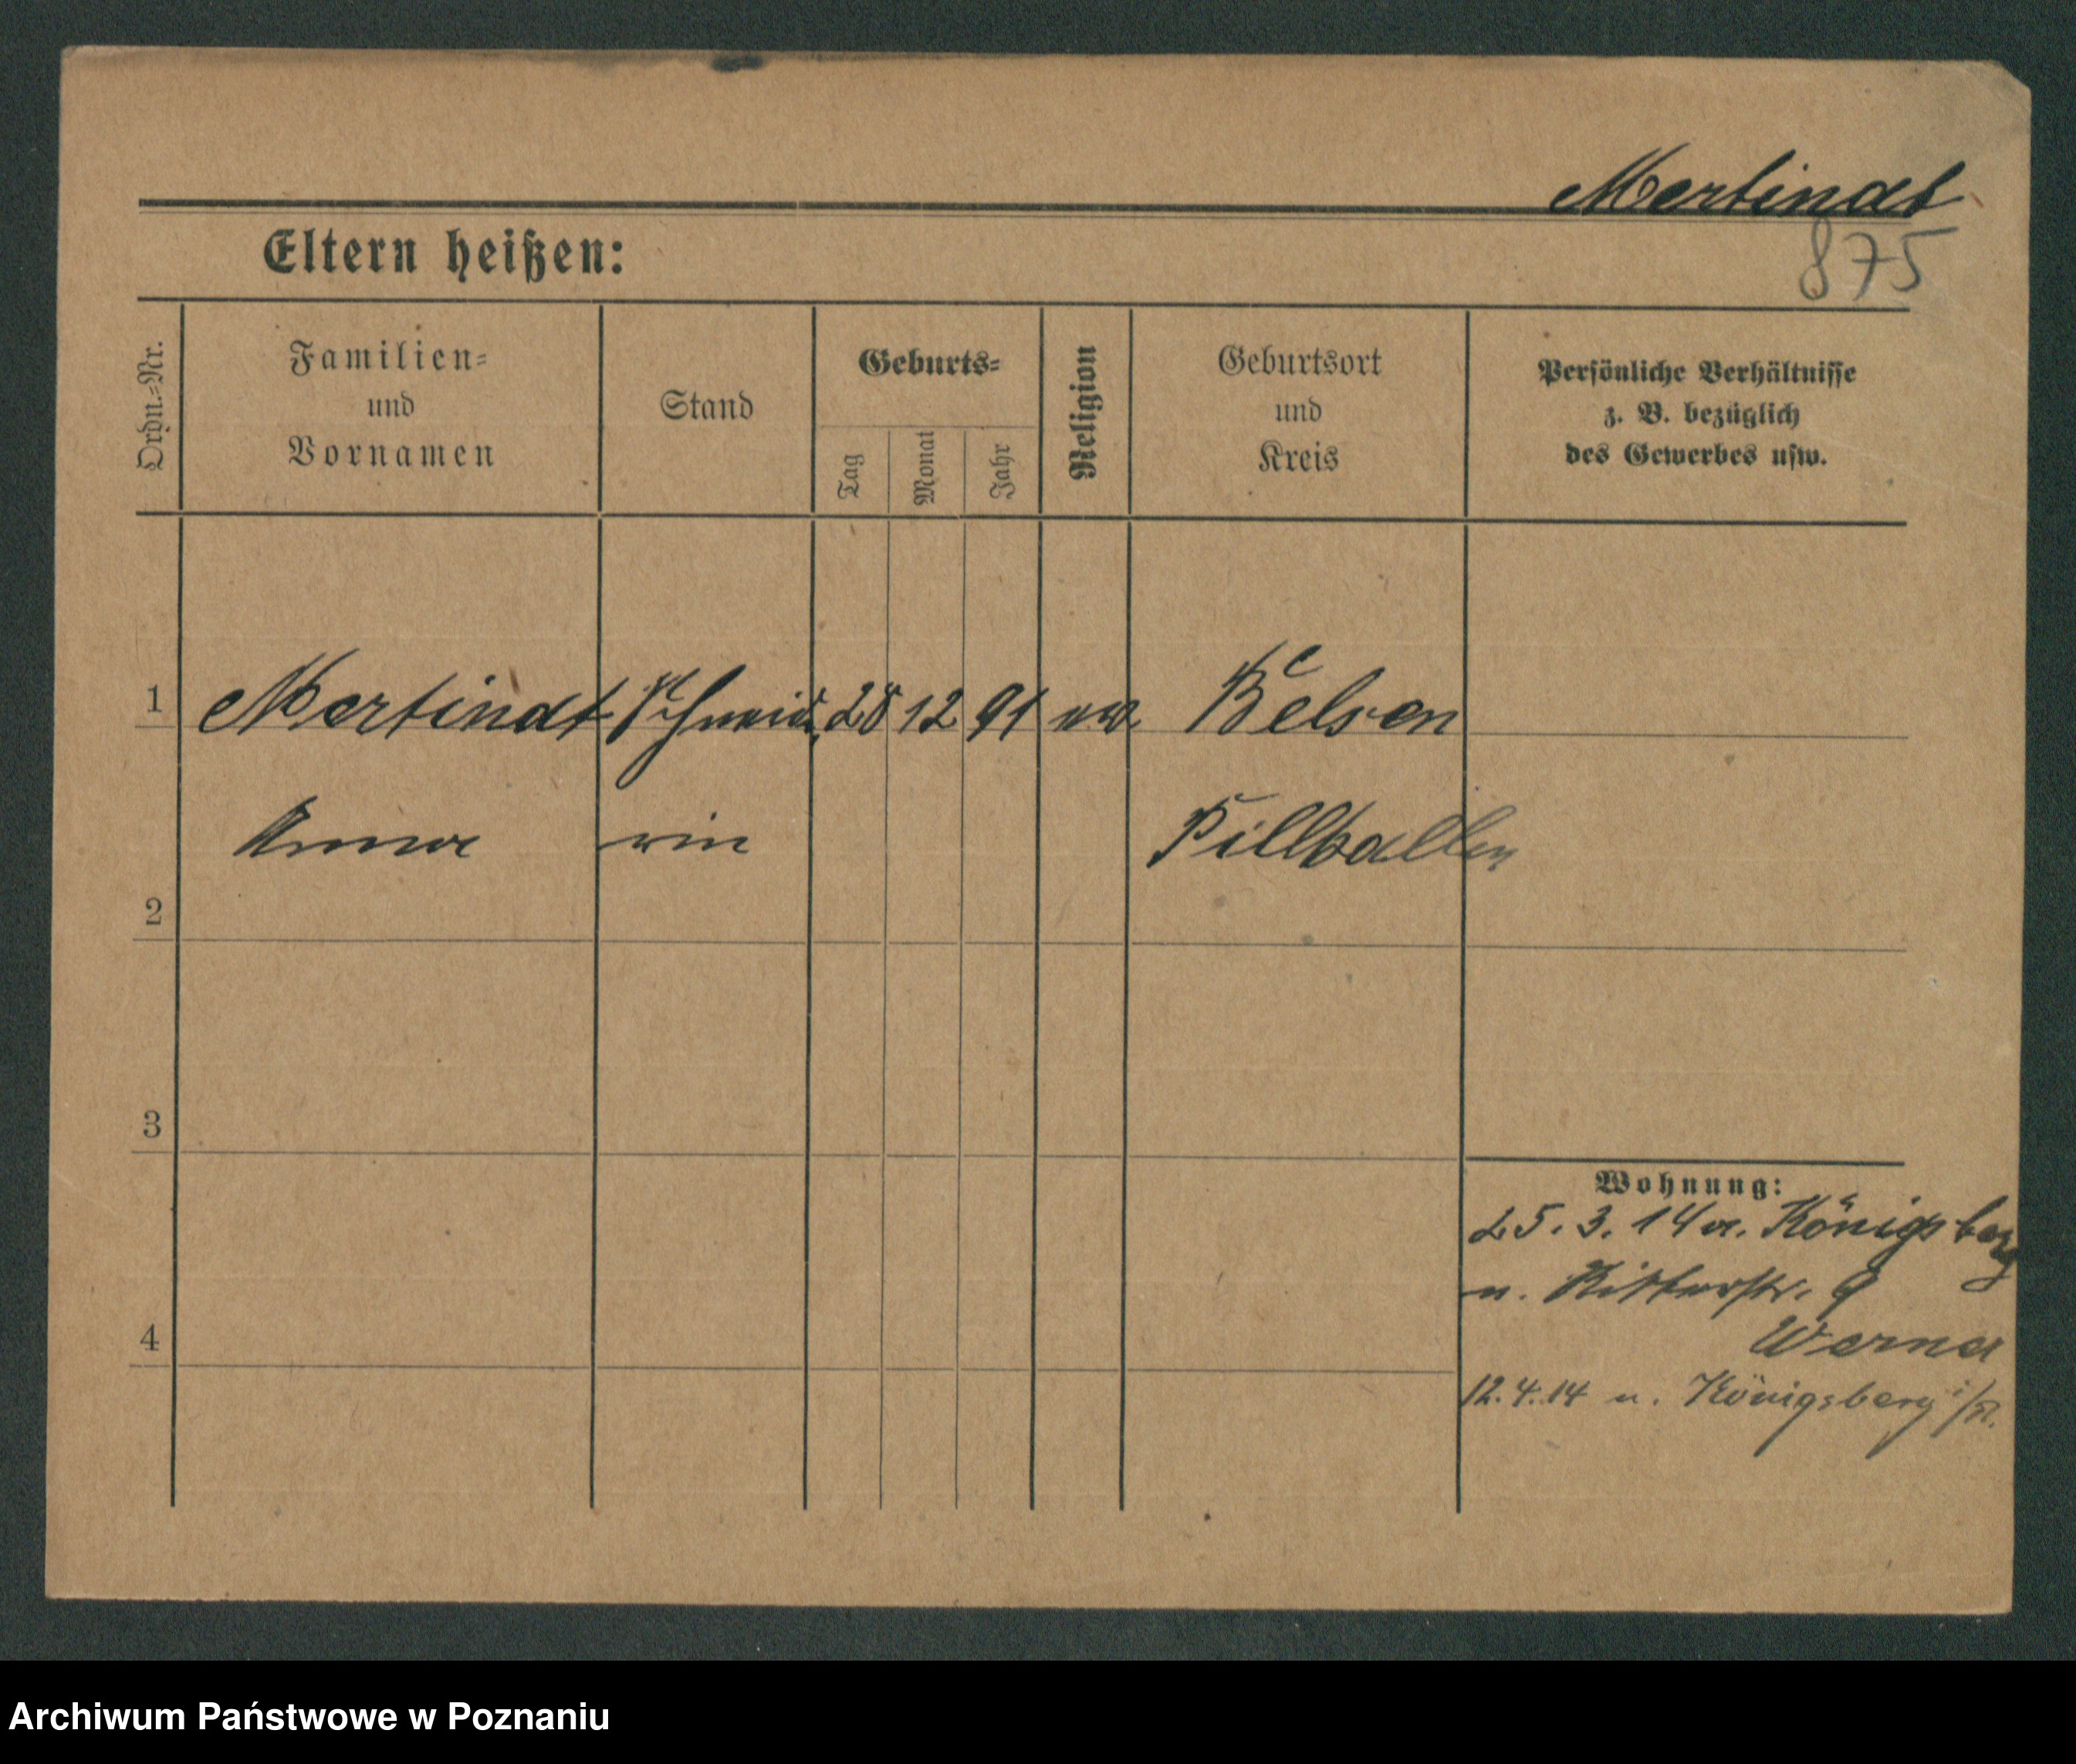 Mertinat
875
Eltern heißen:
Ordn.-Nr.
Familien-
und
Vornamen
Stand
Geburts-
Tag
Monat
Jahr
Religion
Geburtsort
und
Kreis
Persönliche Verhältnisse
z. B. bezüglich
des Gewerbes usw.
1 Mertinat Schneid. 28 12 91 ev.
Anna rin Pillkallen
2
3
Wohnung:
25. 3. 14 a. Königsberg
n. Ritterstr. 9
4
Werner
12.4.14 n. Königsberg i/Pr.
Archiwum Państwowe w Poznaniu